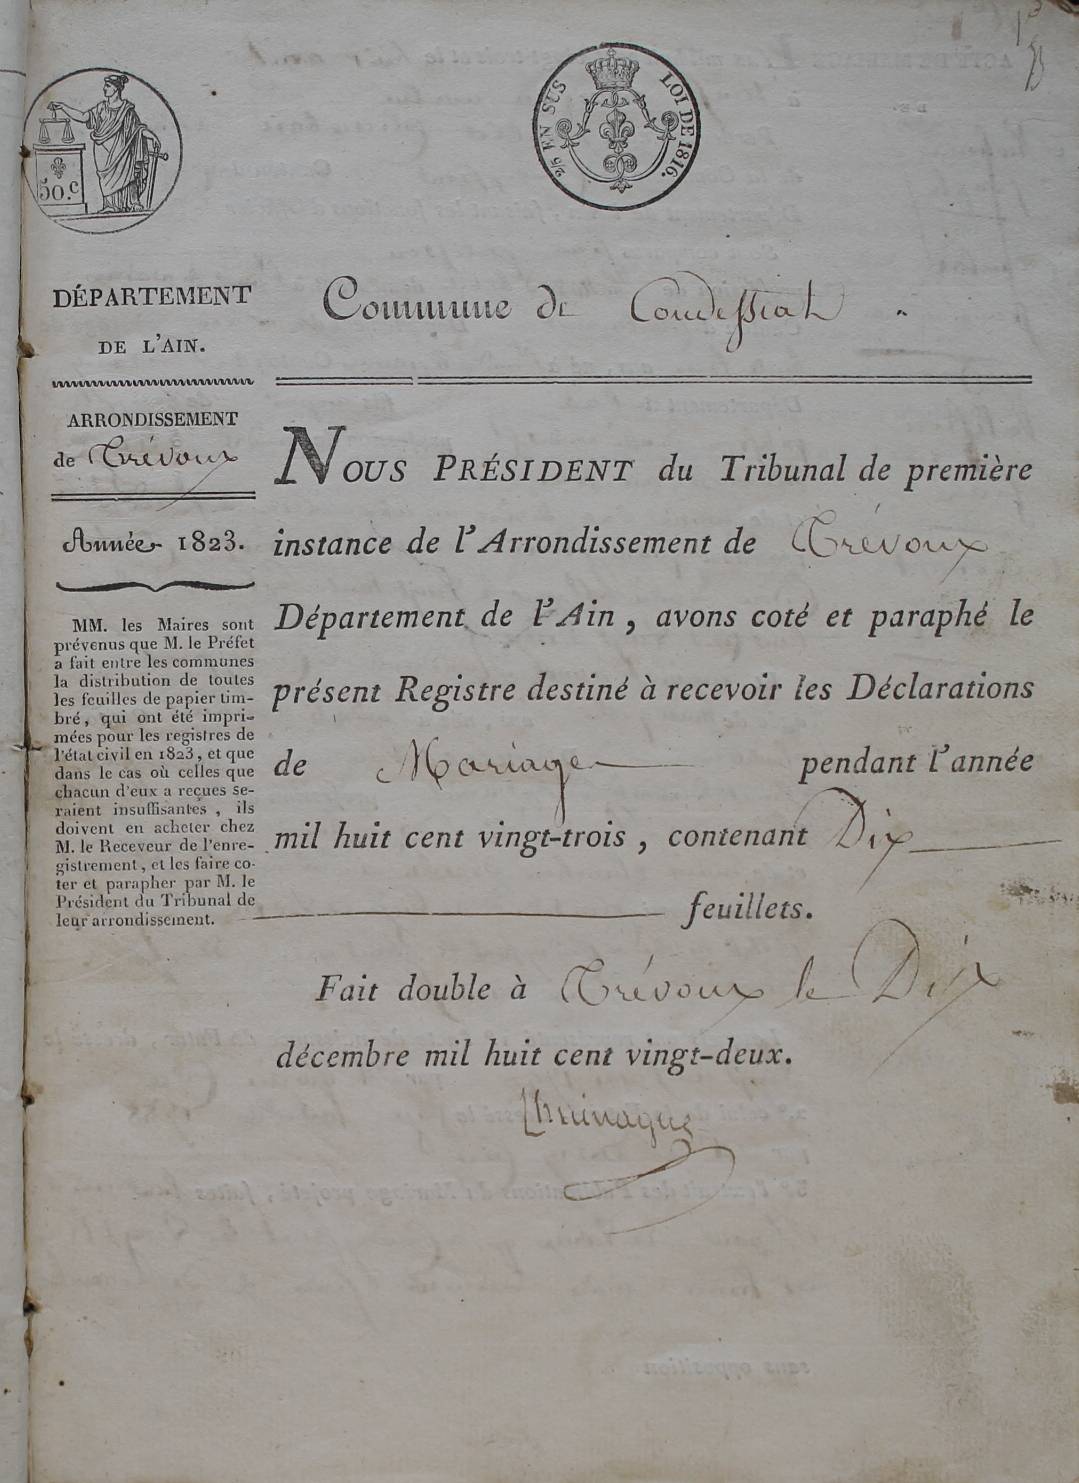 50.c
2/5 EN SUS
LOI DE 1816.
DÉPARTEMENT
DE L'AIN.
ARRONDISSEMENT
de Trévoux
Année 1823.
MM. les Maires sont
prévenus que M. le Préfet
a fait entre les communes
la distribution de toutes
les feuilles de papier tim-
bré, qui ont été impri-
mées pour les registres de
l'état civil en 1823, et que
dans le cas où celles que
chacun d'eux a reçues se-
raient insuffisantes, ils
doivent en acheter chez
M. le Receveur de l'enre-
gistrement, et les faire co-
ter et parapher par M. le
Président du Tribunal de
leur arrondissement.
Commune de Condessiat
NOUS PRÉSIDENT du Tribunal de première
instance de l'Arrondissement de Trévoux
Département de l'Ain, avons coté et paraphé le
présent Registre destiné à recevoir les Déclarations
de Mariage pendant l'année
mil huit cent vingt-trois, contenant Dix
feuillets.
Fait double à Trévoux le Dix
décembre mil huit cent vingt-deux.